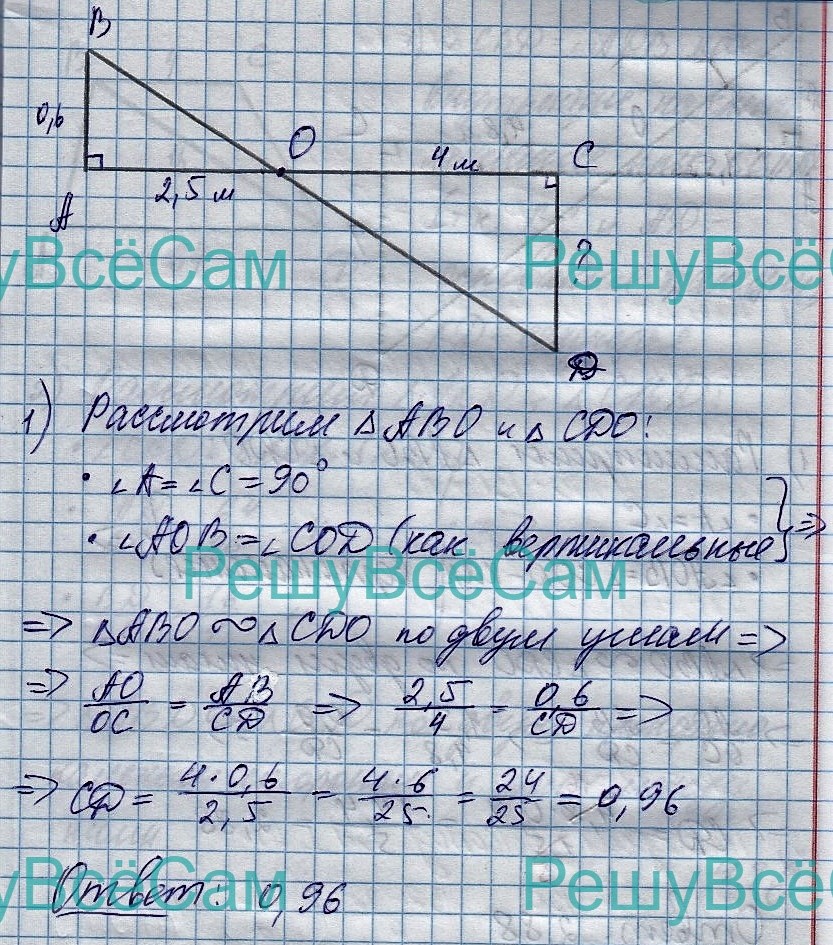 B
0,6
O
4 м
C
2,5 м
A
РешуВсёСам
РешуВсёСам
?
D
1) Рассмотрим △ABO и △CDO:
• ∠A = ∠C = 90°
• ∠AOB = ∠COD (как вертикальные} =>
РешуВсёСам
=> △ABO ~ △CDO по двум углам =>
=> AO/OC = AB/CD => 2,5/4 = 0,6/CD =>
=> CD = 4·0,6/2,5 = 4·6/25 = 24/25 = 0,96
РешуВсёСам
РешуВсёСам
Ответ: 0,96